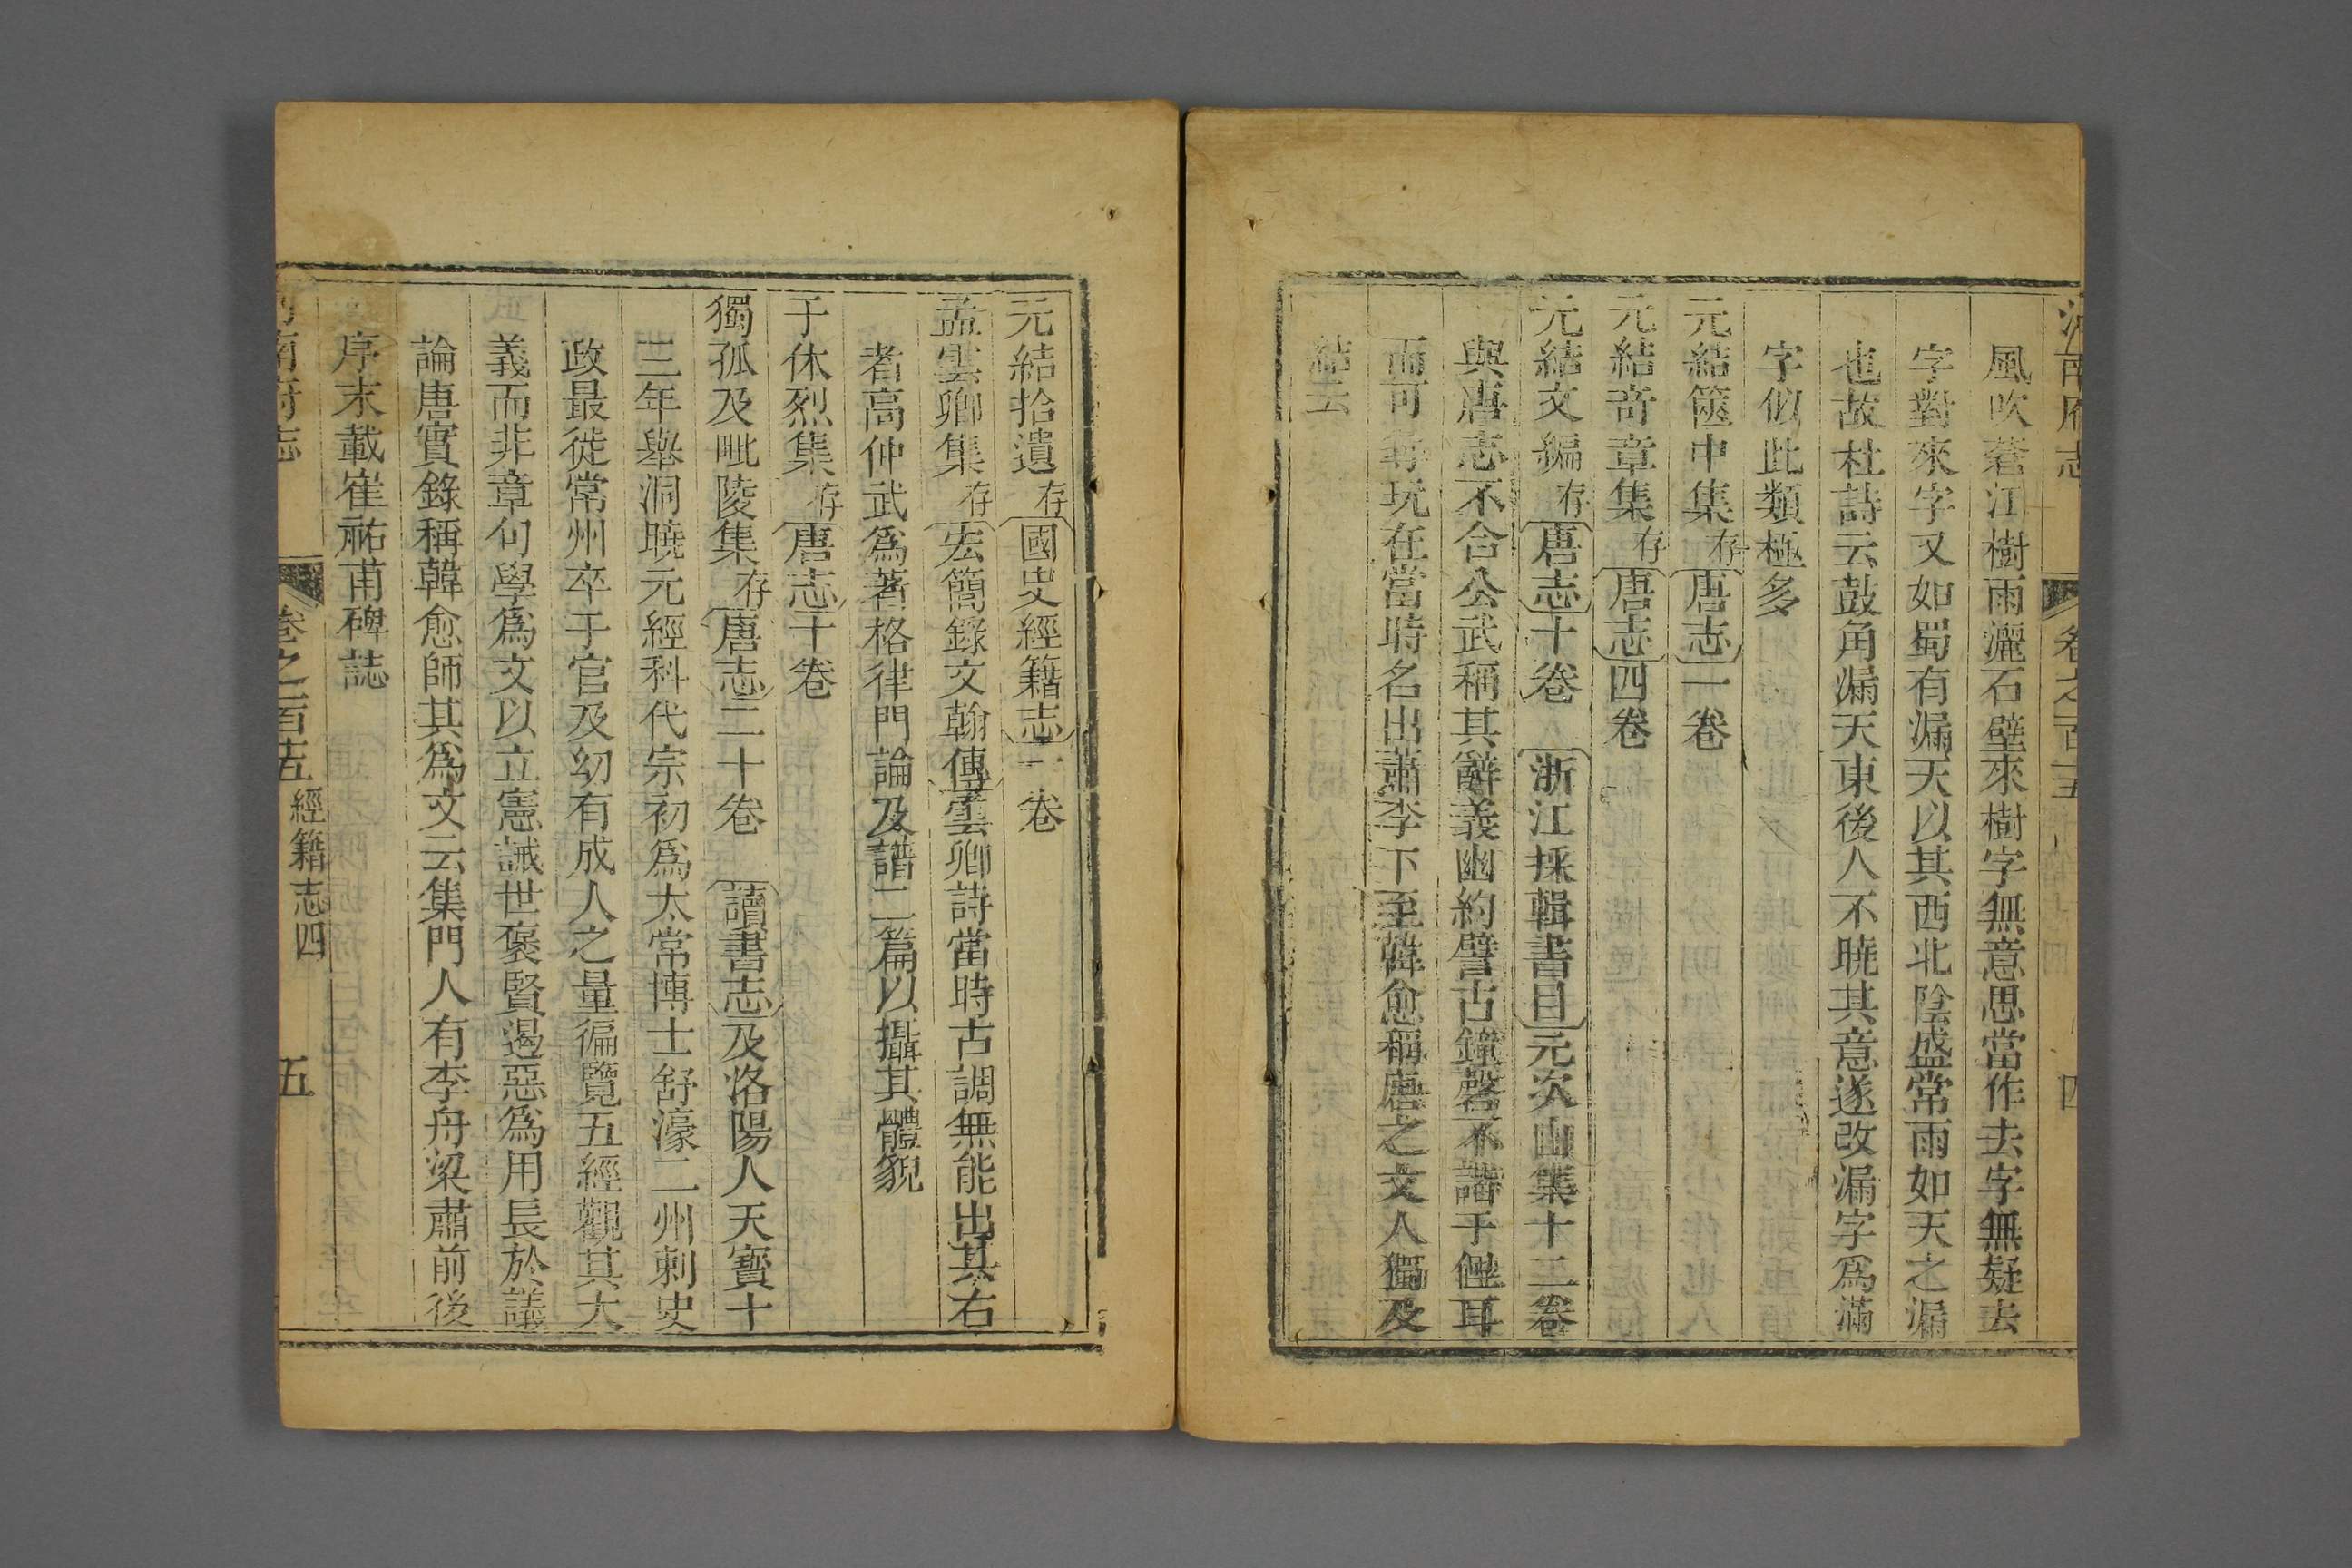 河南府志 卷之百五 四
風吹蒼江樹雨灑石壁來樹字無意思當作去字無疑去
字對來字又如蜀有漏天以其西北陰盛常雨如天之漏
也故杜詩云鼓角漏天東後人不曉其意遂改漏字爲滿
字似此類極多
元結篋中集存唐志一卷
元結奇章集存唐志四卷
元結文編存唐志十卷 浙江採輯書目元次山集十二卷
與唐志不合公武稱其辭義幽約譬古鐘磬不諧于俚耳
而可尋玩在當時名出蕭李下至韓愈稱唐之文人獨及
結云
元結拾遺存國史經籍志一卷
孟雲卿集存宏簡錄文翰傳雲卿詩當時古調無能出其右
者高仲武爲著格律門論及譜二篇以攝其體貌
于休烈集存唐志十卷
獨孤及毗陵集存唐志二十卷 讀書志及洛陽人天寶十
三年舉洞曉元經科代宗初爲太常博士舒濠二州刺史
政最徙常州卒于官及幼有成人之量徧覽五經觀其大
義而非章句學爲文以立憲誡世褒賢遏惡爲用長於議
論唐實錄稱韓愈師其爲文云集門人有李舟梁肅前後
序末載崔祐甫碑誌
河南府志 卷之百五 經籍志四 五